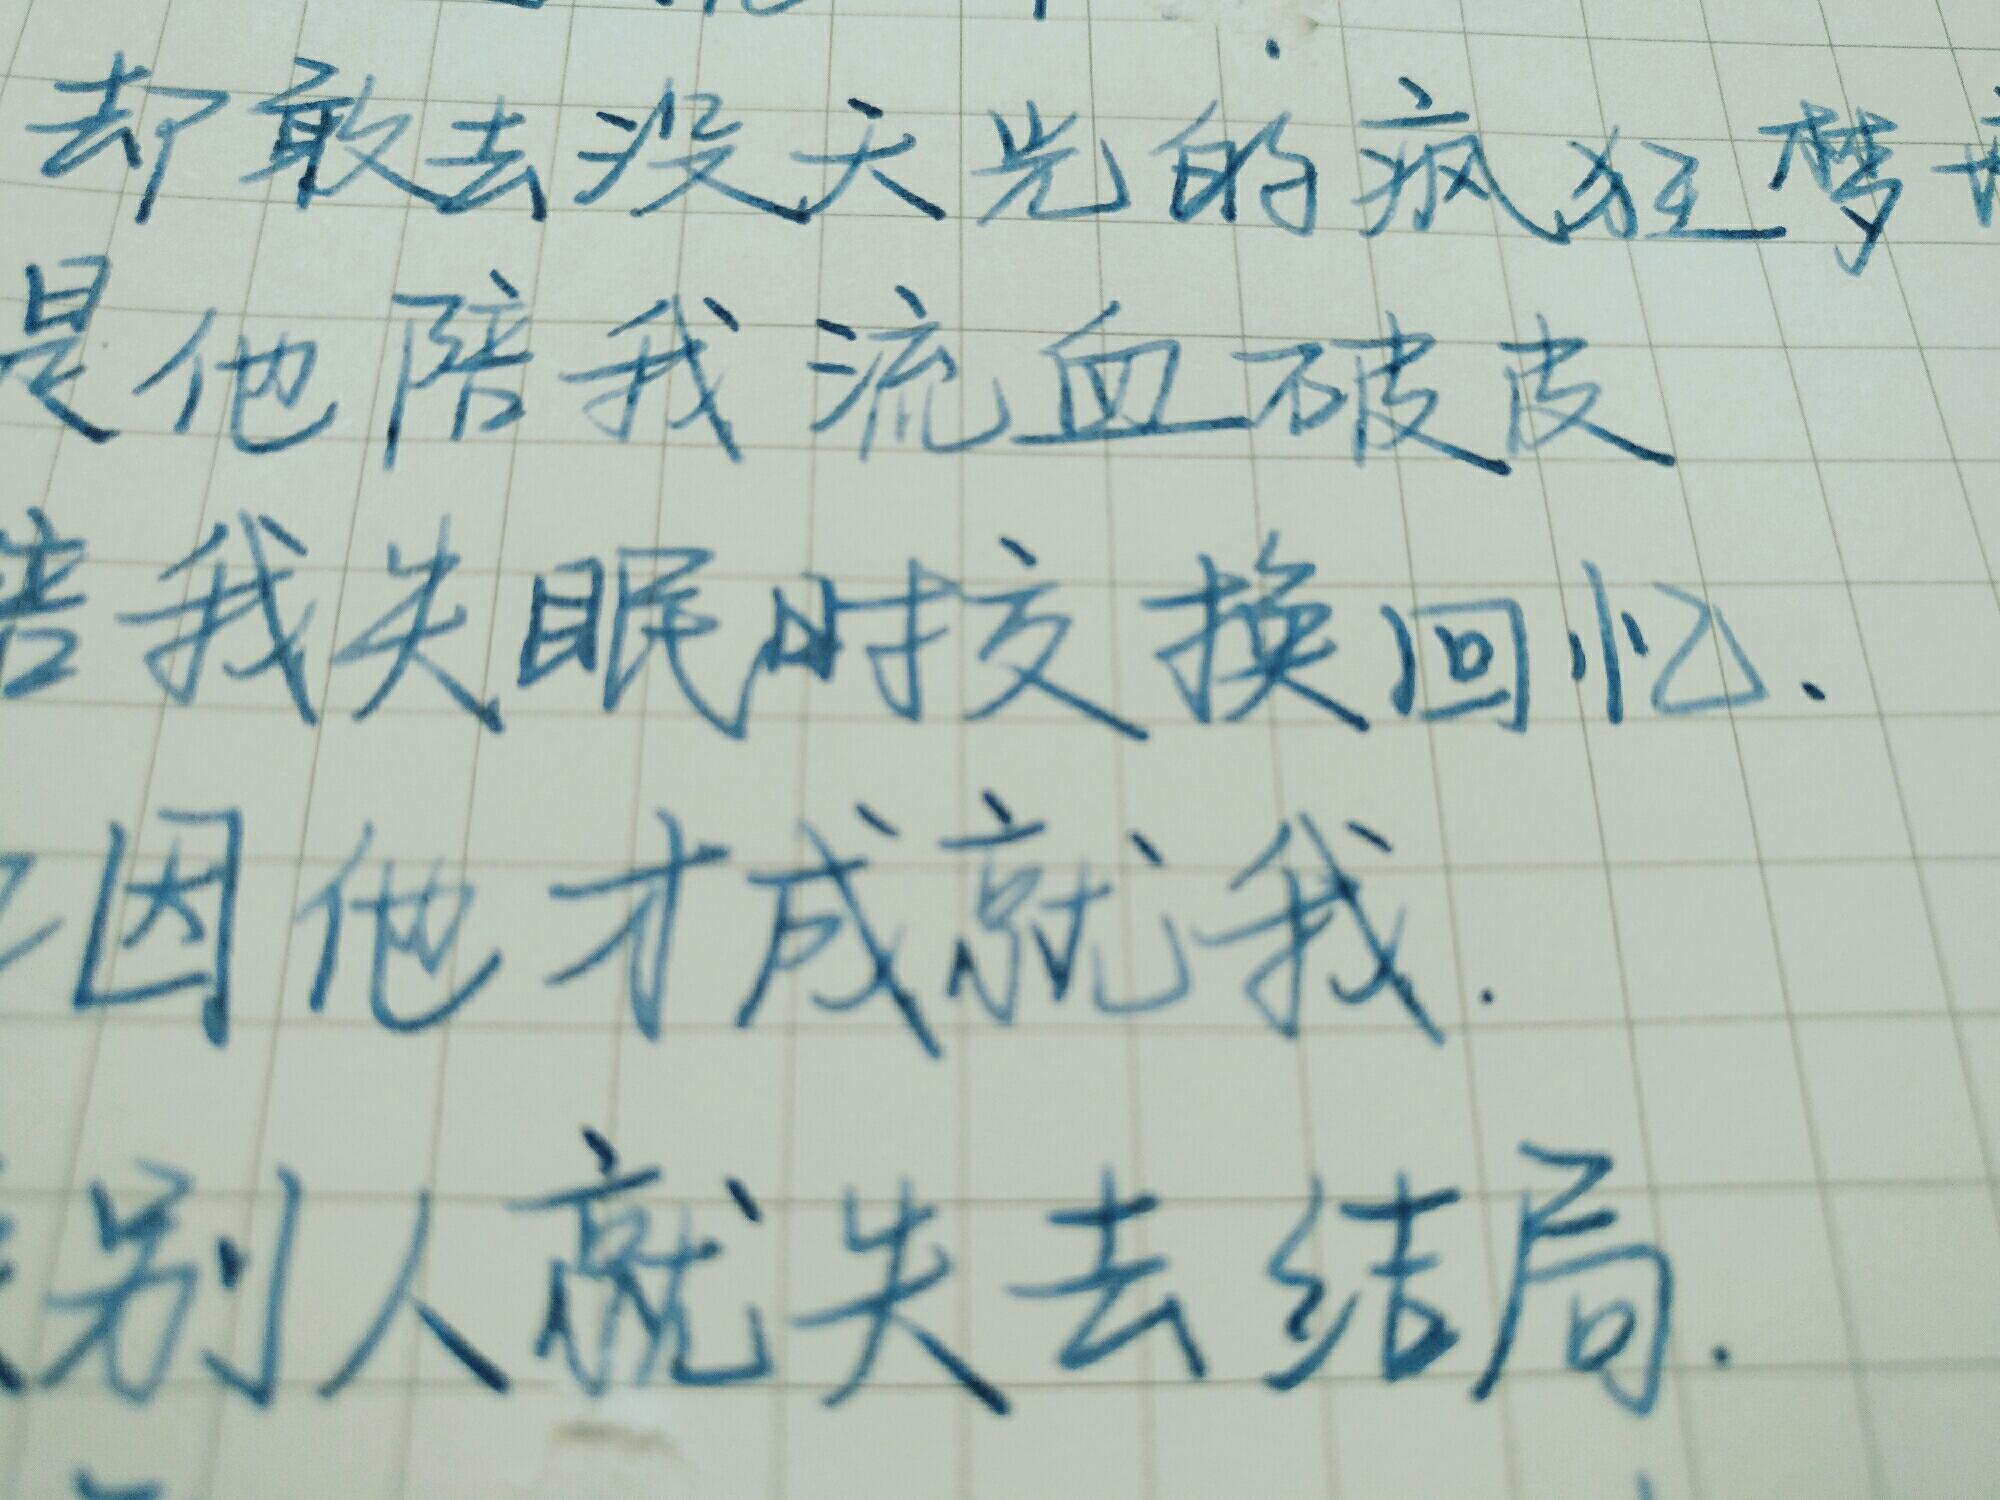 却敢去没天光的疯狂梦
是他陪我流血破皮
陪我失眠时交换回忆.
因他才成就我.
别人就失去结局.